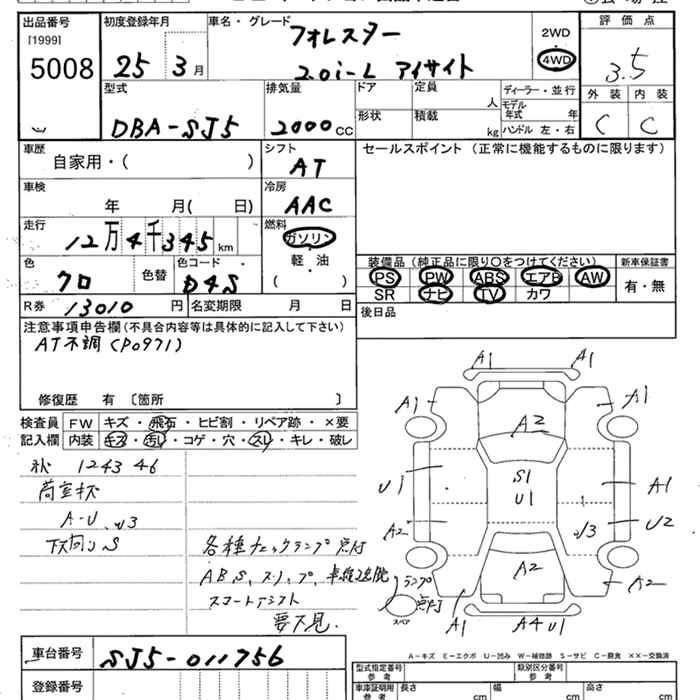 出品番号
[1999]
5008
初度登録年月
25 3月
車名・グレード
フォレスター
2.0i-L アイサイト
2WD
4WD
評価点
3.5
外装 内装
C C
型式
DBA-SJ5
排気量
2000 CC
ドア
形状
定員
人
積載
kg
ディーラー・並行
モデル年式 年
ハンドル 左・右
車歴
自家用・( )
シフト
AT
車検
年 月( 日)
冷房
AAC
走行
12万4千345 km
燃料
ガソリン
軽・油
( )
色
クロ
色替
色コード
D4S
R券 13010 円
名変期限 月 日
セールスポイント (正常に機能するものに限ります)
装備品 (純正品に限り〇をつけてください)
PS PW ABS エアB AW
SR ナビ TV カワ
新車保証書
有・無
後日品
注意事項申告欄(不具合内容等は具体的に記入して下さい)
AT不調(P0971)
修復歴 有 〔箇所 〕
検査員
記入欄
FW キズ・飛石・ヒビ割・リペア跡・×要
内装 キズ・汚れ・コゲ・穴・スレ・キレ・破レ
124346
A-U
各種チェックランプ点灯
要下見
A1 A1
A1 A1
A2
U1
S1
U1
A1
A2
U3
U2
A2
A2
A1
A4U1
ランプ
点灯
スペア
A-キズ E-エクボ U-凹み W-補修跡 S-サビ C-腐食 ××-交換済
車台番号
SJ5-011756
登録番号
型式指定番号
参考
類別区分番号
参考
車庫証明用
参考
長さ cm
幅 cm
高さ cm